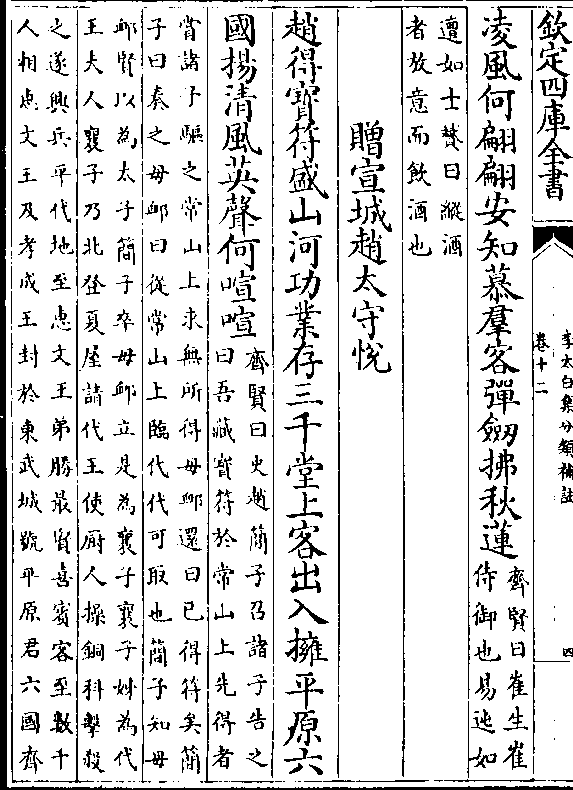 欽定四庫全書
李太白集分類補註
卷十二
四
凌風何翩翩安知慕羣客彈劔拂秋蓮
齊賢曰崔生崔
侍御也易迍如
邅如士贇曰縱酒
者放意而飲酒也
贈宣城趙太守悅
趙得寳符盛山河功業存三千堂上客出入擁平原六
國揚清風英聲何喧喧
齊賢曰史趙簡子召諸子告之
曰吾藏寳符於常山上先得者
賞諸子驅之常山上求無所得毋邺還曰已得符矣簡
子曰奏之毋邺曰從常山上臨代代可取也簡子知毋
邺賢以為太子簡子卒毋邺立是為襄子襄子姊為代
王夫人襄子乃北登夏屋請代王使厨人操銅枓擊殺
之遂興兵平代地至惠文王弟勝最賢喜賓客至數千
人相惠文王及孝成王封於東武城號平原君六國齊